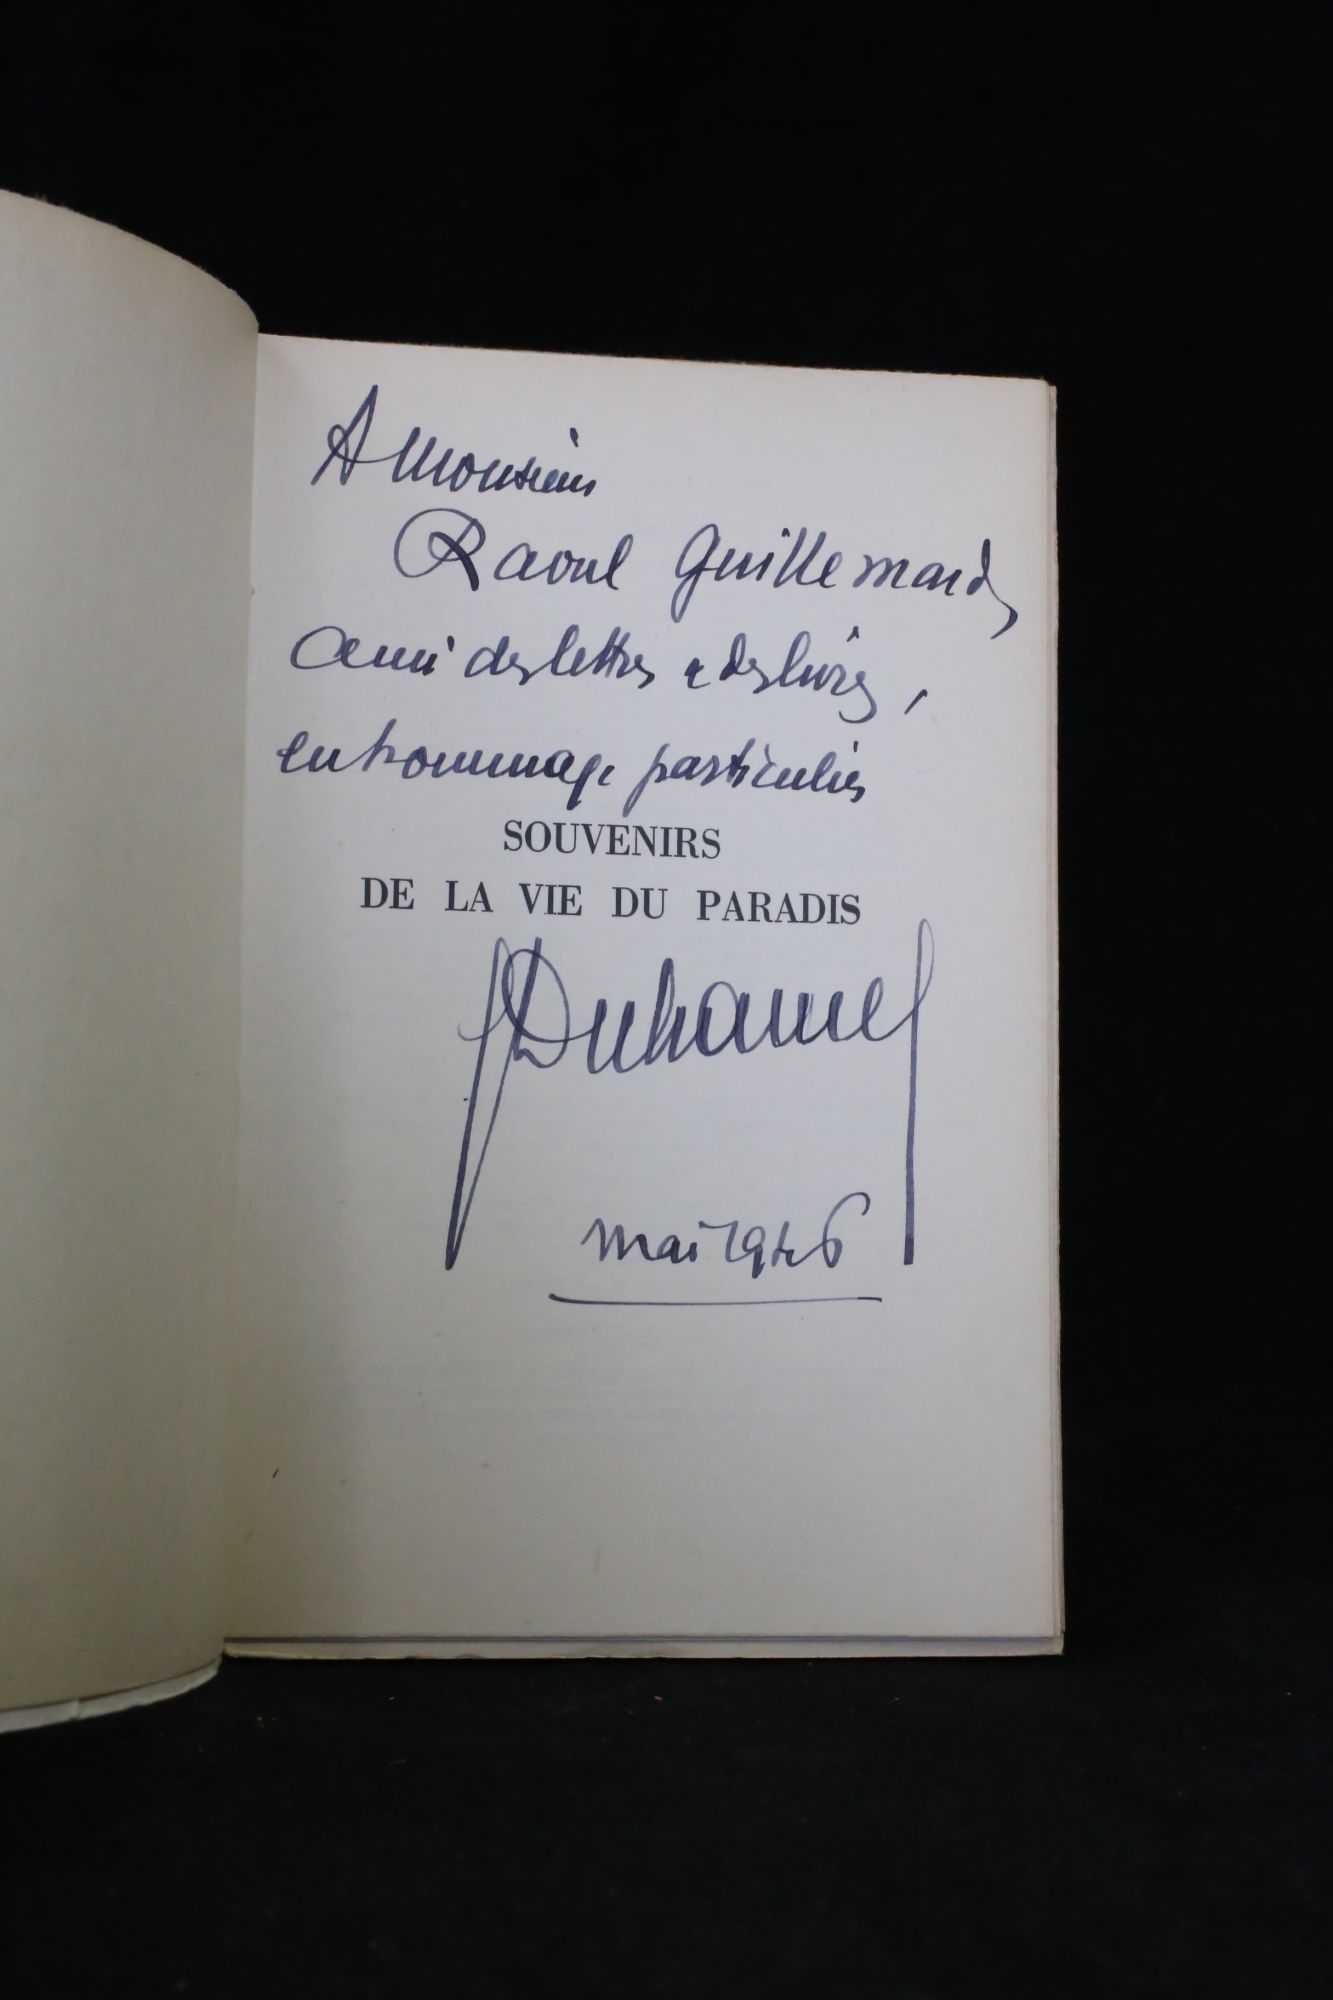 A Monsieur
Raoul Guillemard,
ami des lettres & des livres,
en hommage particulier
SOUVENIRS
DE LA VIE DU PARADIS
GDuhamel
mai 1946